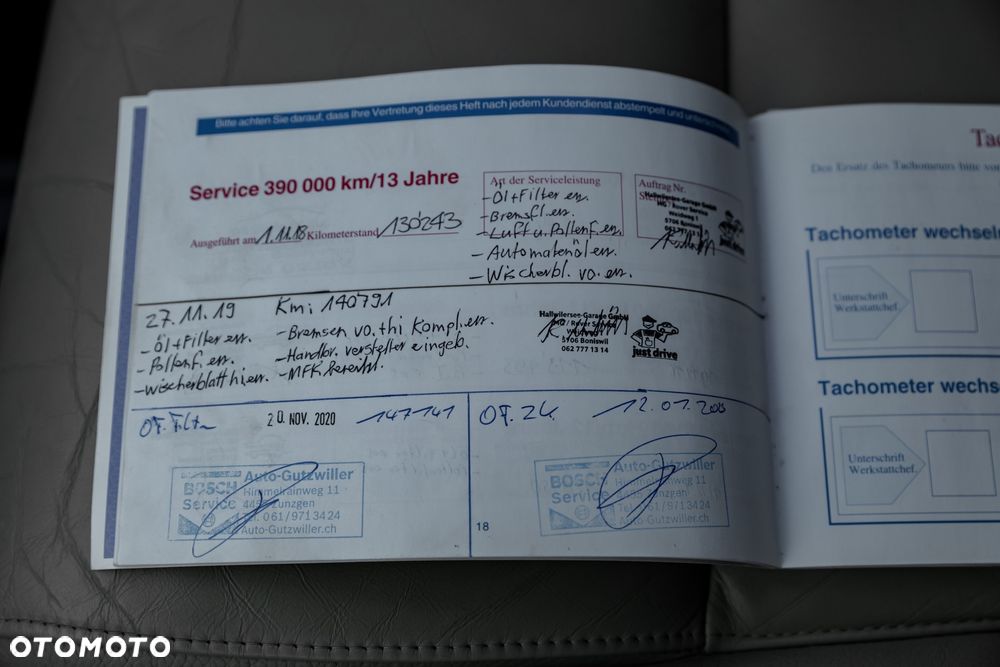 Bitte achten Sie darauf, dass Ihre Vertretung dieses Heft nach jedem Kundendienst abstempelt und
Service 390 000 km/13 Jahre
Ausgeführt am 1.11.18 Kilometerstand 130243
Art der Serviceleistung
- Öl+Filter ers.
- Bremsfl. ers.
- Luft u. Pollenf. ers.
- Automatenöl ers.
- Wischerbl. vo. ers.
Auftrag Nr.
Hallwilersee-Garage GmbH
MG / Rover Service
Weidweg 1
5706 Boniswil
062 777 13 14
just drive
27.11.19 Km: 140791
- Öl+Filter ers.
- Pollenf. ers.
- Wischerblatt hi ers.
- Bremsen vo. + hi kompl. ers.
- Handbr. versteller eingeb.
- MFK bereitst.
Hallwilersee-Garage GmbH
MG / Rover Service
5706 Boniswil
062 777 13 14
just drive
20. NOV. 2020 147141
BOSCH
Service
Auto-Gutzwiller
Himmelrainweg 11
Zunzgen
Tel. 061/971 34 24
Auto-Gutzwiller.ch
12.01.
BOSCH
Service
Auto-Gutzwiller
Himmelrainweg 11
4455 Zunzgen
Tel. 061/971 34 24
Auto-Gutzwiller.ch
18
Den Ersatz des Tachometers bitte
Tachometer
Unterschrift
Werkstattchef.
Tachometer
Unterschrift
Werkstattchef.
OTOMOTO